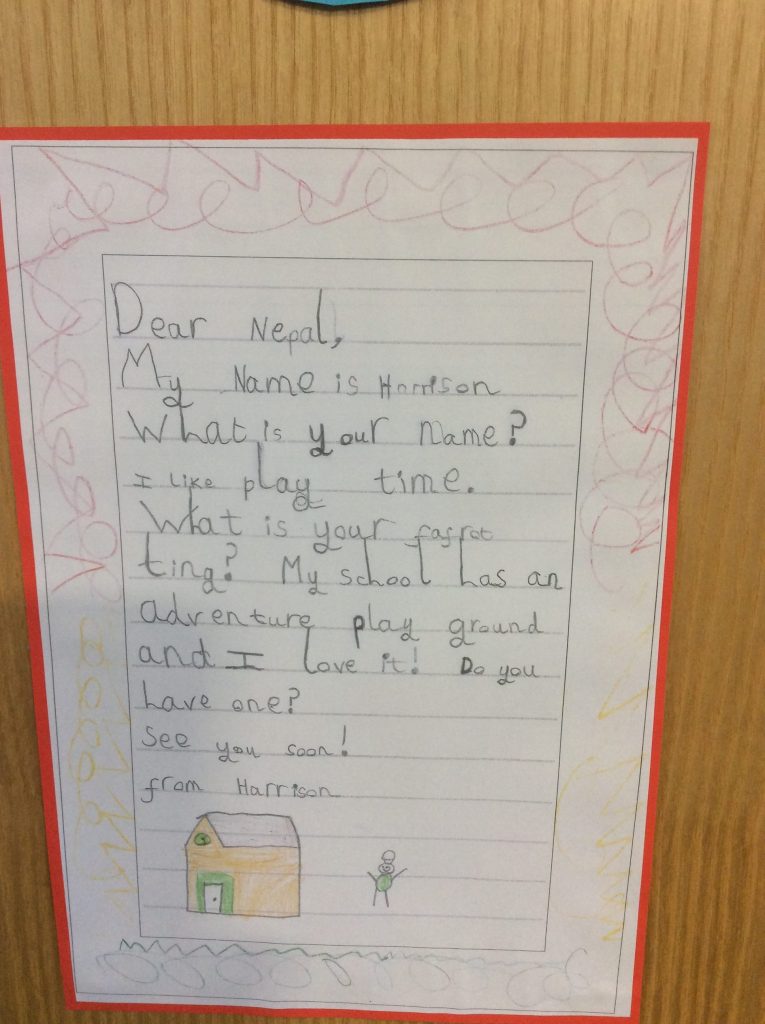 Dear Nepal,
My Name is Harrison
What is your name?
I like play time.
What is your
ting? My school has an
adventure play ground
and I love it! Do you
have one?
See you soon!
from Harrison